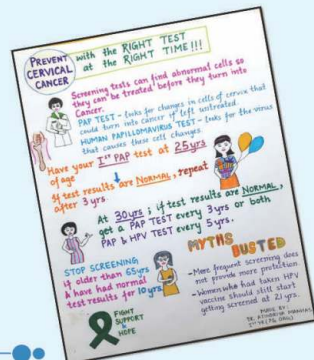 PREVENT CERVICAL CANCER with the RIGHT TEST
at the RIGHT TIME!!!
Screening tests can find abnormal cells so
they can be treated before they turn into
Cancer.
PAP TEST - looks for changes in cells of cervix that
could turn into cancer if left untreated.
HUMAN PAPILLOMAVIRUS TEST - looks for the virus
that causes these cell changes.
Have your 1ST PAP test at 25yrs
of age
If test results are NORMAL, repeat
after 3 yrs.
At 30yrs; if test results are NORMAL,
get a PAP TEST every 3yrs or both
PAP & HPV TEST every 5 yrs.
STOP SCREENING
if older than 65yrs
& have had normal
test results for 10yrs.
MYTHS
BUSTED
- More frequent screening does
not provide more protection
- Women who had taken HPV
vaccine should still start
getting screened at 21 yrs.
FIGHT
SUPPORT
& HOPE
MADE BY: